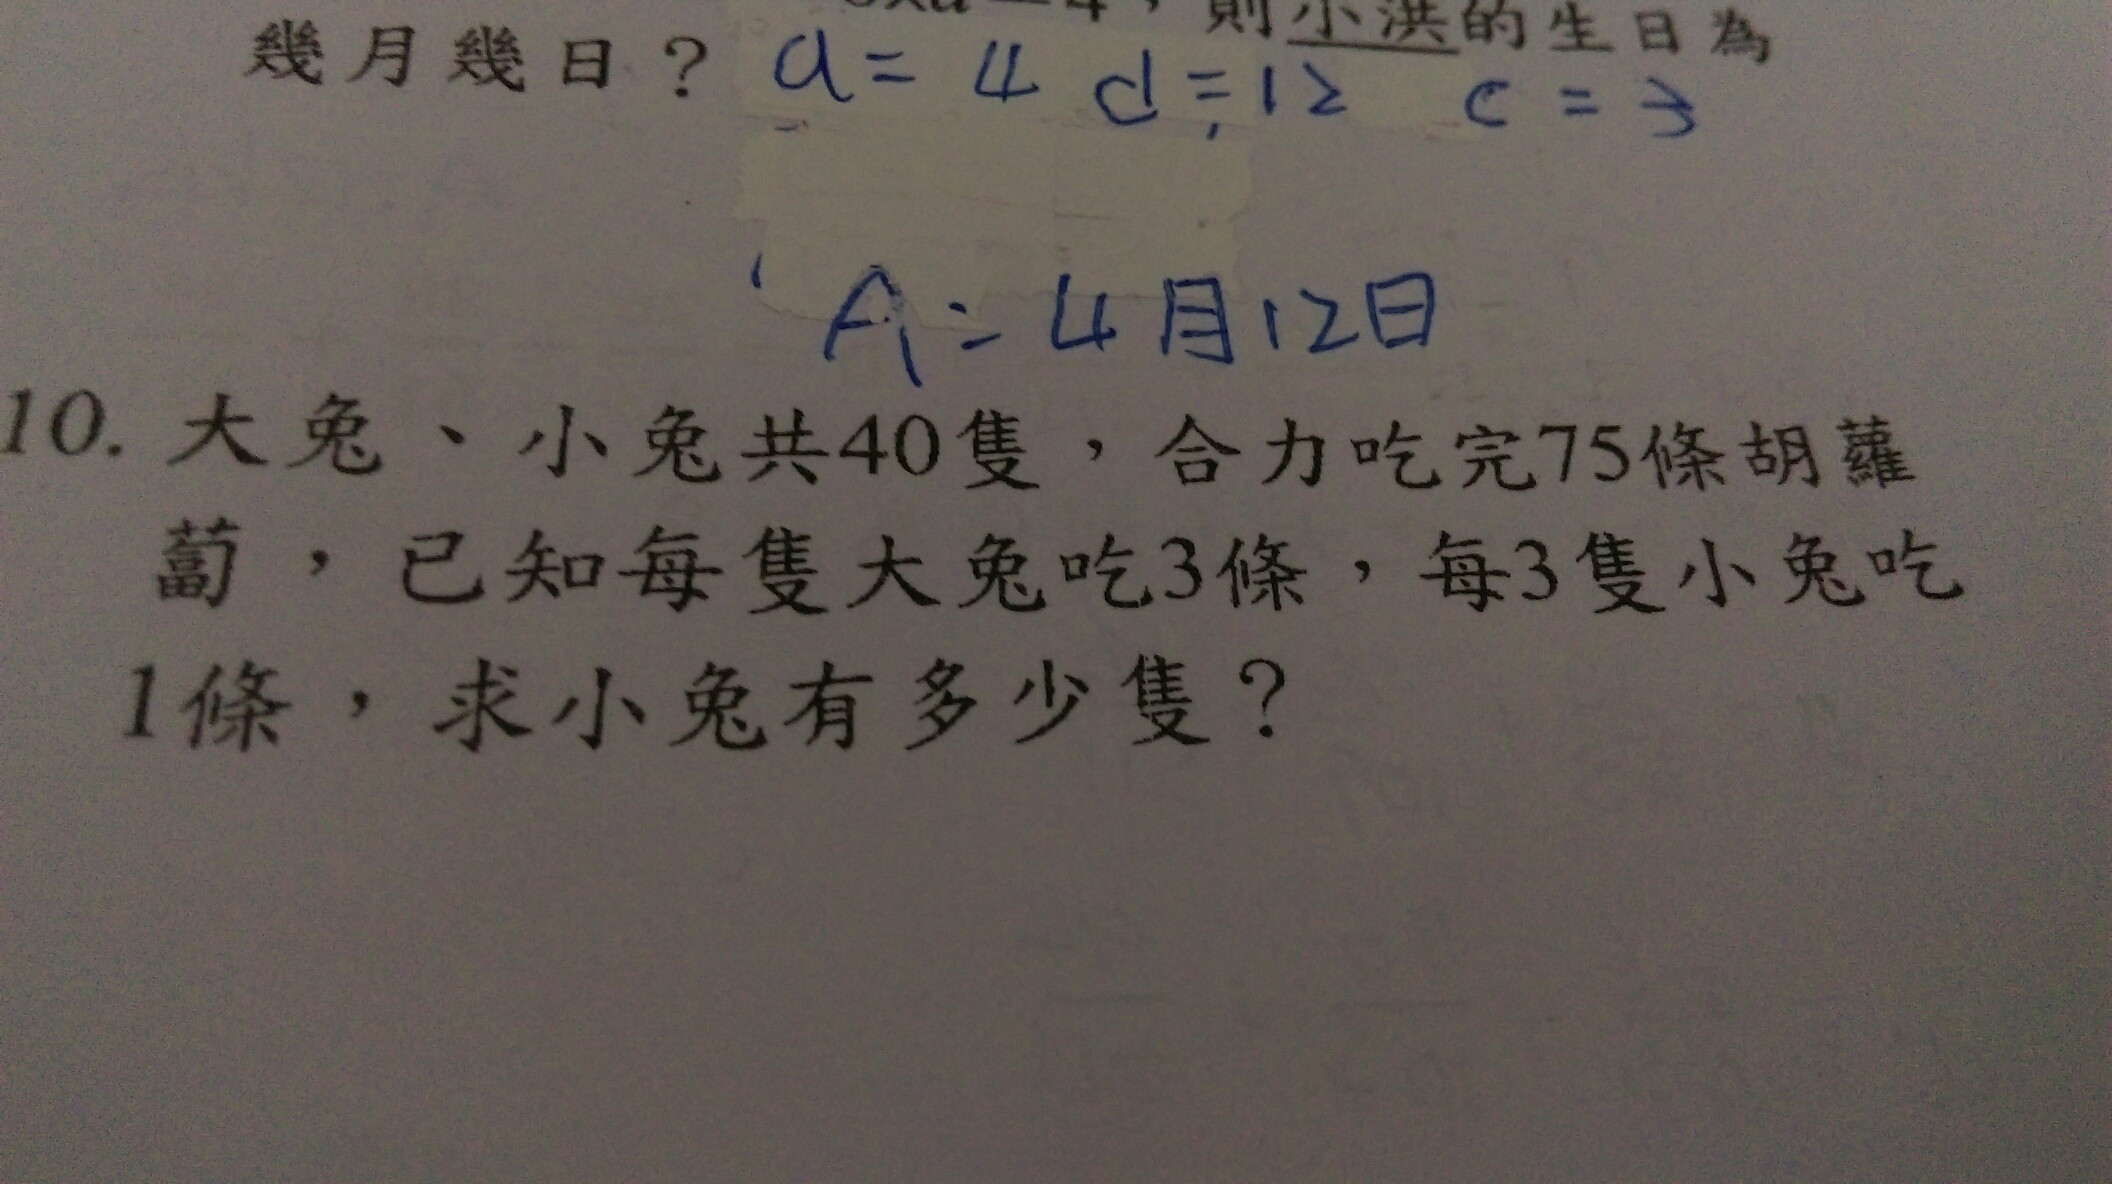 則小洪的生日為
幾月幾日？ a = 4 d = 12 c = 3
A = 4月12日
10. 大兔、小兔共40隻，合力吃完75條胡蘿
蔔，已知每隻大兔吃3條，每3隻小兔吃
1條，求小兔有多少隻？